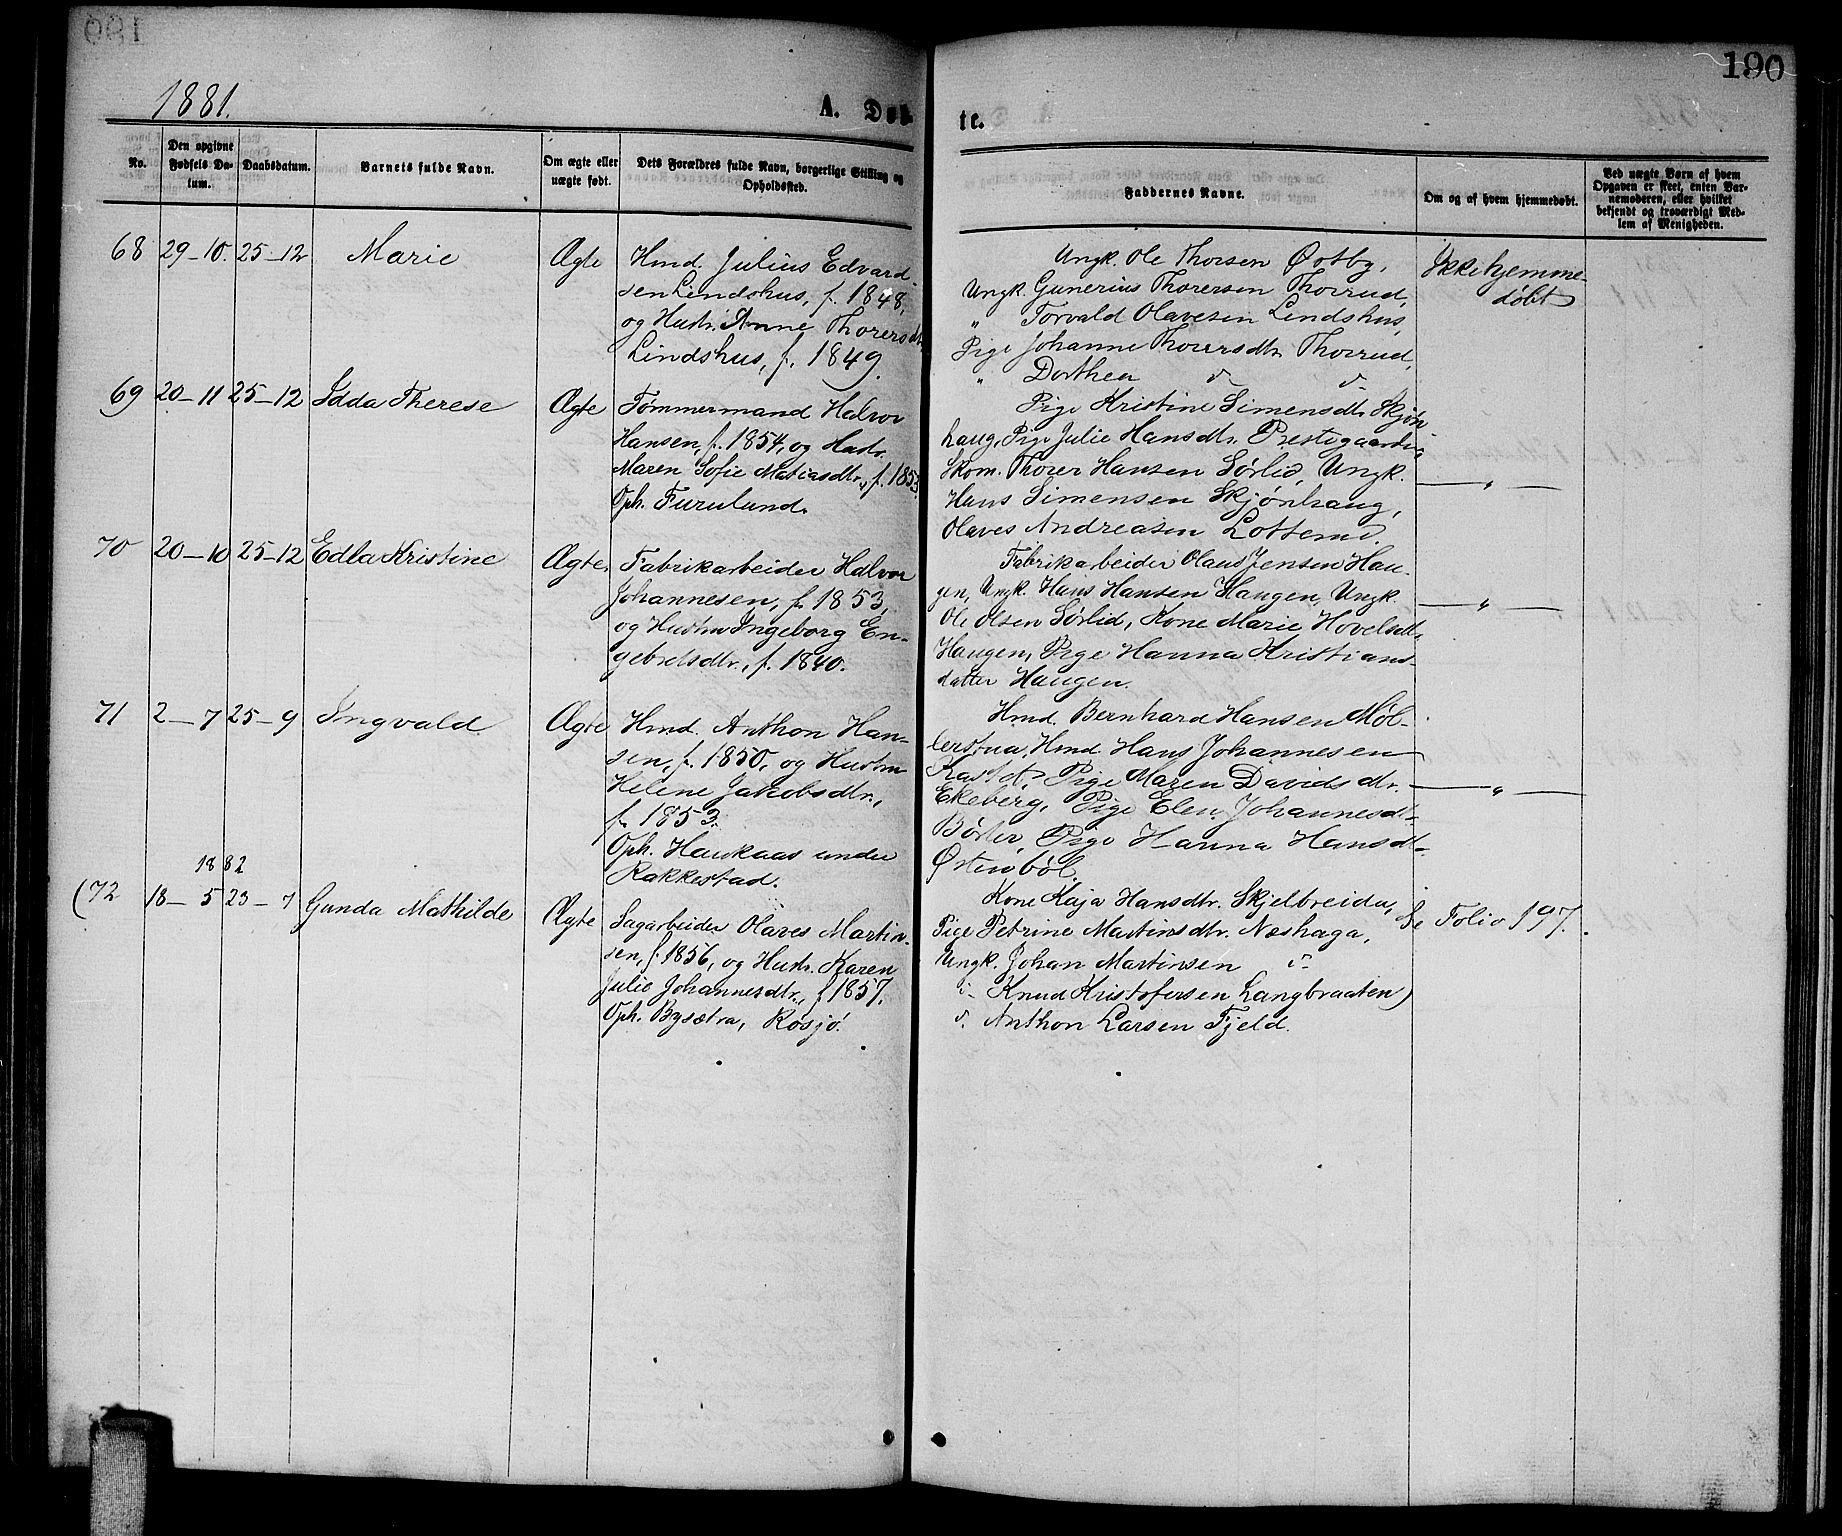 190
1881.
A. Døb-
te.
No.
Den opgivne Fødsels Da-
tum.
Daabsdatum.
Barnets fulde Navn.
Om ægte eller
uægte født.
Dets Forældres fulde Navn, borgerlige Stilling og
Opholdssted.
Faddernes Navne.
Om og af hvem hjemmedøbt.
Ved uægte Børn af hvem
Opgaven er skeet, enten Bar-
nemoderen, eller hvilket
bekjendt og troværdigt Med-
lem af Menigheden.
68 29-10. 25-12 Marie Ægte
Hmd. Julius Edvard-
sen Lindshus, f. 1848,
og Hustr. Anne Thorersdtr.
Lindshus, f. 1849.
Ungk. Ole Thorsen Østby,
Ungk. Gunerius Thorersen Thorrud,
" Torvald Olavesen Lindshus,
Pige Johanne Thorersdtr. Thorrud,
" Dorthea d. d.
Ikke hjemme-
døbt
69 20-11 25-12 Idda Therese Ægte
Tømmermand Halvor
Hansen, f. 1854, og Hustr.
Maren Sofie Matiasdtr., f. 1853.
Oph. Furulund.
Pige Kristine Simensdtr. Skjøn-
haug, Pige Julie Hansdtr. Prestegaarden,
Skom. Thorer Hansen Sørlid, Ungk.
Hans Simensen Skjønhaug,
Olaves Andreasen Lotterud.
— " —
70 20-10 25-12 Edla Kristine Ægte
Fabrikarbeider Halvor
Johannesen, f. 1853,
og Hustru Ingeborg En-
gebretsdtr., f. 1840.
Fabrikarbeider Olaus Jensen Hau-
gen, Ungk. Hans Hansen Haugen, Ungk.
Ole Olsen Sørlid, Kone Marie Hovelsdtr.
Haugen, Pige Hanna Kristians-
datter Haugen.
— " —
71 2-7 25-9 Ingvald Ægte
Hmd. Anthon Han-
sen, f. 1850, og Hustru
Helene Jakobsdtr.,
f. 1853.
Oph. Haukaas under
Rakkestad.
Hmd. Bernhard Hansen Møl-
lerstua, Hmd. Hans Johannesen
Pige Maren Davidsdtr.
Ekeberg, Pige Elen Johannesdt.
Børter, Pige Hanna Hansdt.
Østenbøl.
— " —
1882
(72 18-5 23-7 Gunda Mathilde Ægte
Sagarbeider Olaves Martin-
sen, f. 1856, og Hustr. Karen
Julie Johannesdtr., f. 1857.
Oph. Bysætra, Rosjø.
Kone Kaja Hansdtr. Skjelbreida,
Pige Petrine Martinsdtr. Næshaga,
Ungk. Johan Martinsen d.
d. Knud Kristofersen Langbraaten)
d. Anthon Larsen Fjeld.
Se Folio 197.